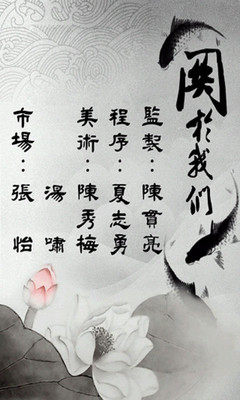 關於我们
監製：陳實亮
程序：夏志勇
美術：陳秀梅
湯嘯
市場：張怡